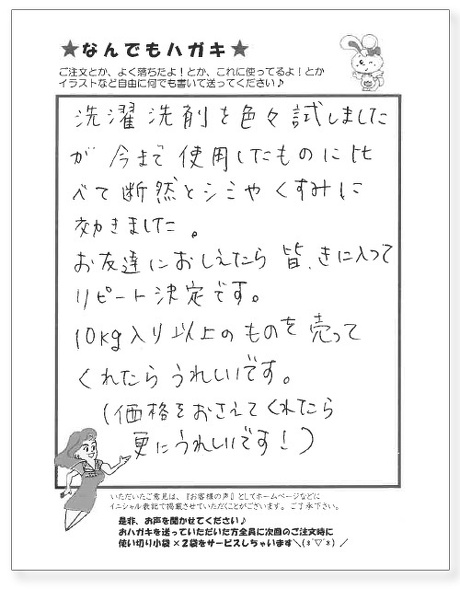 ★なんでもハガキ★
ご注文とか、よく落ちたよ！とか、これに使ってるよ！とか
イラストなど自由に何でも書いて送ってください♪
洗濯洗剤を色々試しました
が 今まで使用したものに比
べて断然とシミやくすみに
効きました。
お友達におしえたら皆、きに入って
リピート決定です。
10kg入り以上のものを売って
くれたらうれしいです。
(価格をおさえてくれたら
更にうれしいです！)
いただいたご意見は、『お客様の声』としてホームページなどに
イニシャル表記で掲載させていただくことがございます。ご了承下さい。
是非、お声を聞かせてください♪
おハガキを送っていただいた方全員に次回のご注文時に
使い切り小袋×2袋をサービスしちゃいます＼(*´▽`*)／